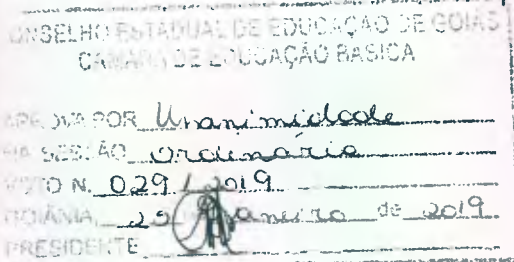 CONSELHO ESTADUAL DE EDUCAÇÃO DE GOIÁS
CÂMARA DE EDUCAÇÃO BÁSICA
POR Unanimidade
NA SESSÃO Ordinária
VOTO N. 029 / 2019
GOIÂNIA, 25 janeiro de 2019
PRESIDENTE